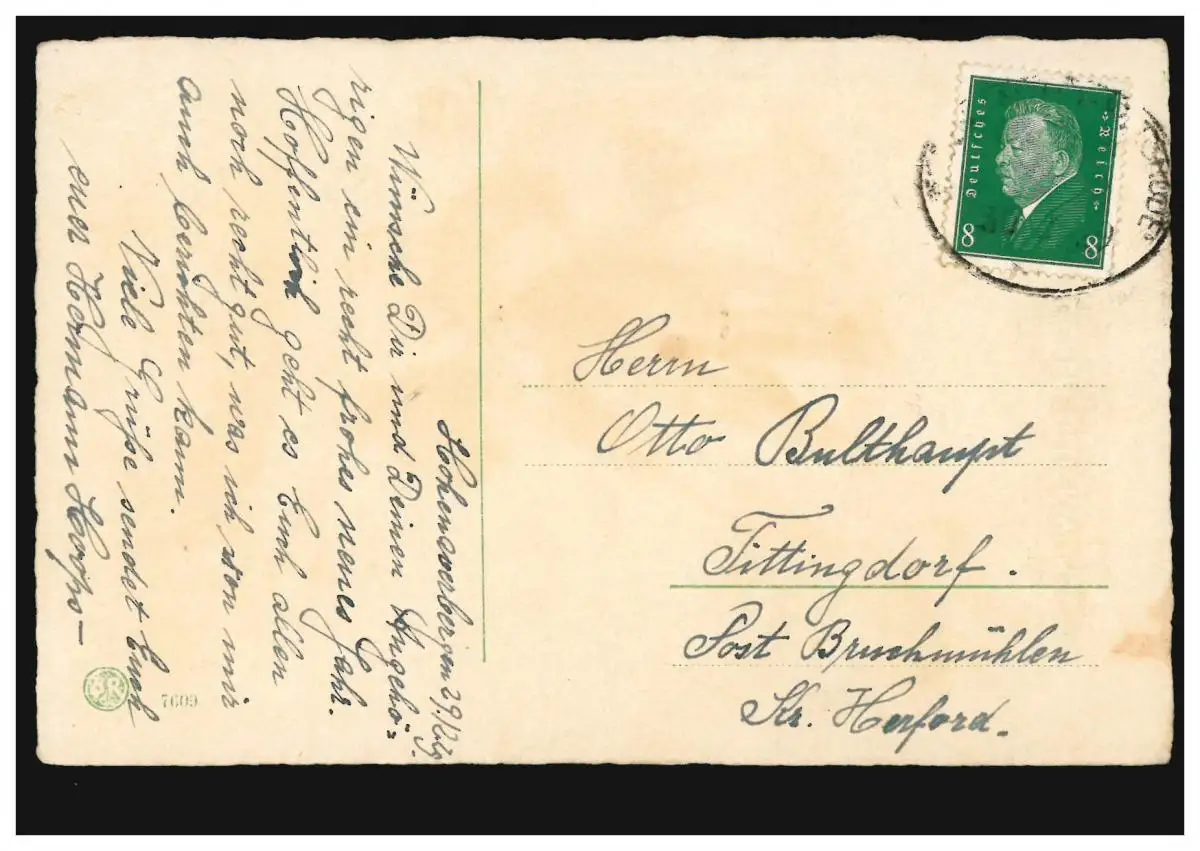 Hohenaverbergen 29/12.
Wünsche Dir und Deinen Angehö=
rigen ein recht frohes neues Jahr.
Hoffentlich geht es Euch allen
noch recht gut, was ich von mir
auch berichten kann.
Viele Grüße sendet Euch
euer Hermann
7609
Deutsches Reich
8 8
Herrn
Otto Bulthaupt
Tittingdorf.
Post Bruchmühlen
Kr. Herford.